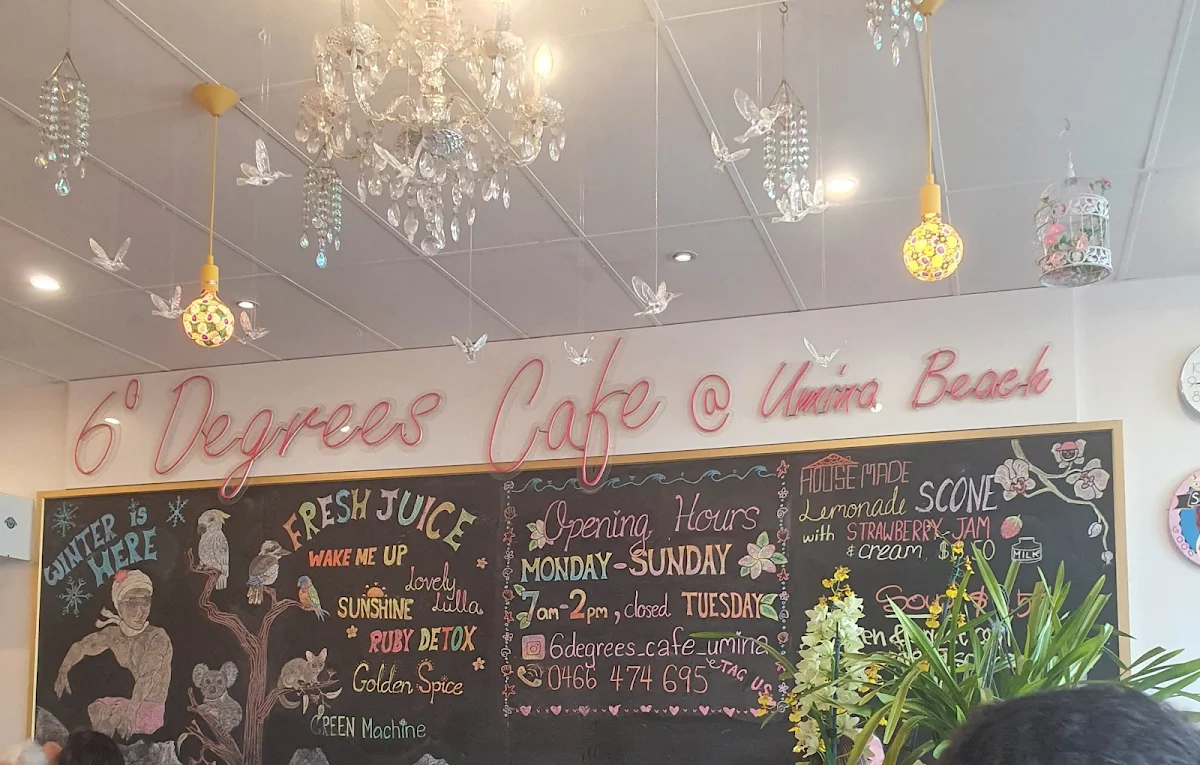 6° Degrees Cafe @ Umina Beach
WINTER IS
HERE
FRESH JUICE
WAKE ME UP
Lovely
Lulla
SUNSHINE
RUBY DETOX
Golden Spice
GREEN Machine
Opening Hours
MONDAY-SUNDAY
7am-2pm, closed TUESDAY
6degrees_cafe_umina
0466 474 695
e TAG US
HOUSE MADE
Lemonade SCONE
with STRAWBERRY JAM
& cream
MILK